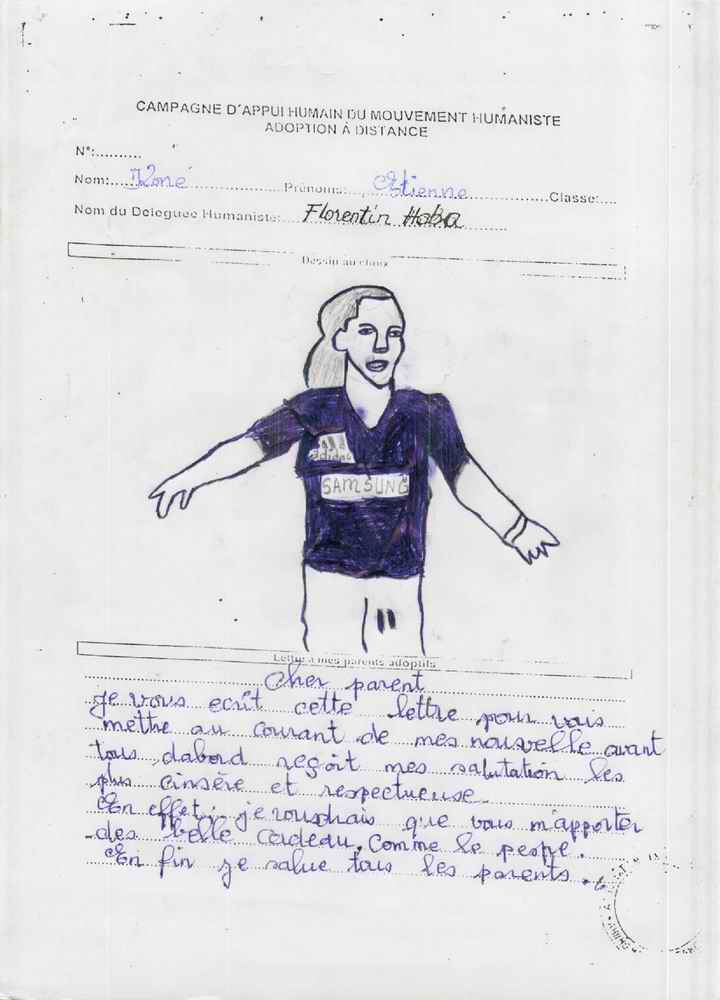 CAMPAGNE D'APPUI HUMAIN DU MOUVEMENT HUMANISTE
ADOPTION À DISTANCE
N°:..........
Nom:....Koné..............Prénoms:....Etienne..............Classe:....
Nom du Deleguee Humaniste: Florentin Haba
Dessin au choix
adidas
SAMSUNG
Lettre à mes parents adoptifs
Cher parent
Je vous ecrit cette lettre pour vais
mettre au courant de mes nouvelle avant
tous dabord reçoit mes salutation les
plus cinsère et respectueuse
En effet; je voudrais que vous m'apporter
des belle cadeau, comme le
En fin je salue tous les parents.